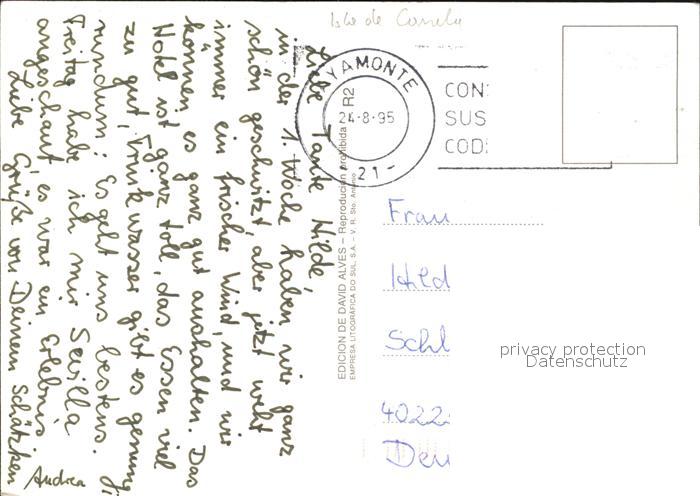 Isla de Canela
Liebe Tante Hilde,
in der 1. Woche haben wir ganz
schön geschwitzt, aber jetzt weht
immer ein frischer Wind, und wir
können es ganz gut aushalten. Das
Hotel ist ganz toll, das Essen viel
zu gut, Trinkwasser gibt es genung,
rundum: Es geht uns bestens.
Freitag habe ich mir Sevilla
angeschaut, es war ein Erlebnis
Liebe Grüße von Deinem Schätzken
Andrea
EDICION DE DAVID ALVES – Reproducion prohibida
EMPRESA LITOGRÁFICA DO SUL, S.A. – V. R. Sto. António
AYAMONTE
R2
24-8-95
21-
CON
SUS
COD
Frau
Hild
Schl
4022
Deu
privacy protection
Datenschutz